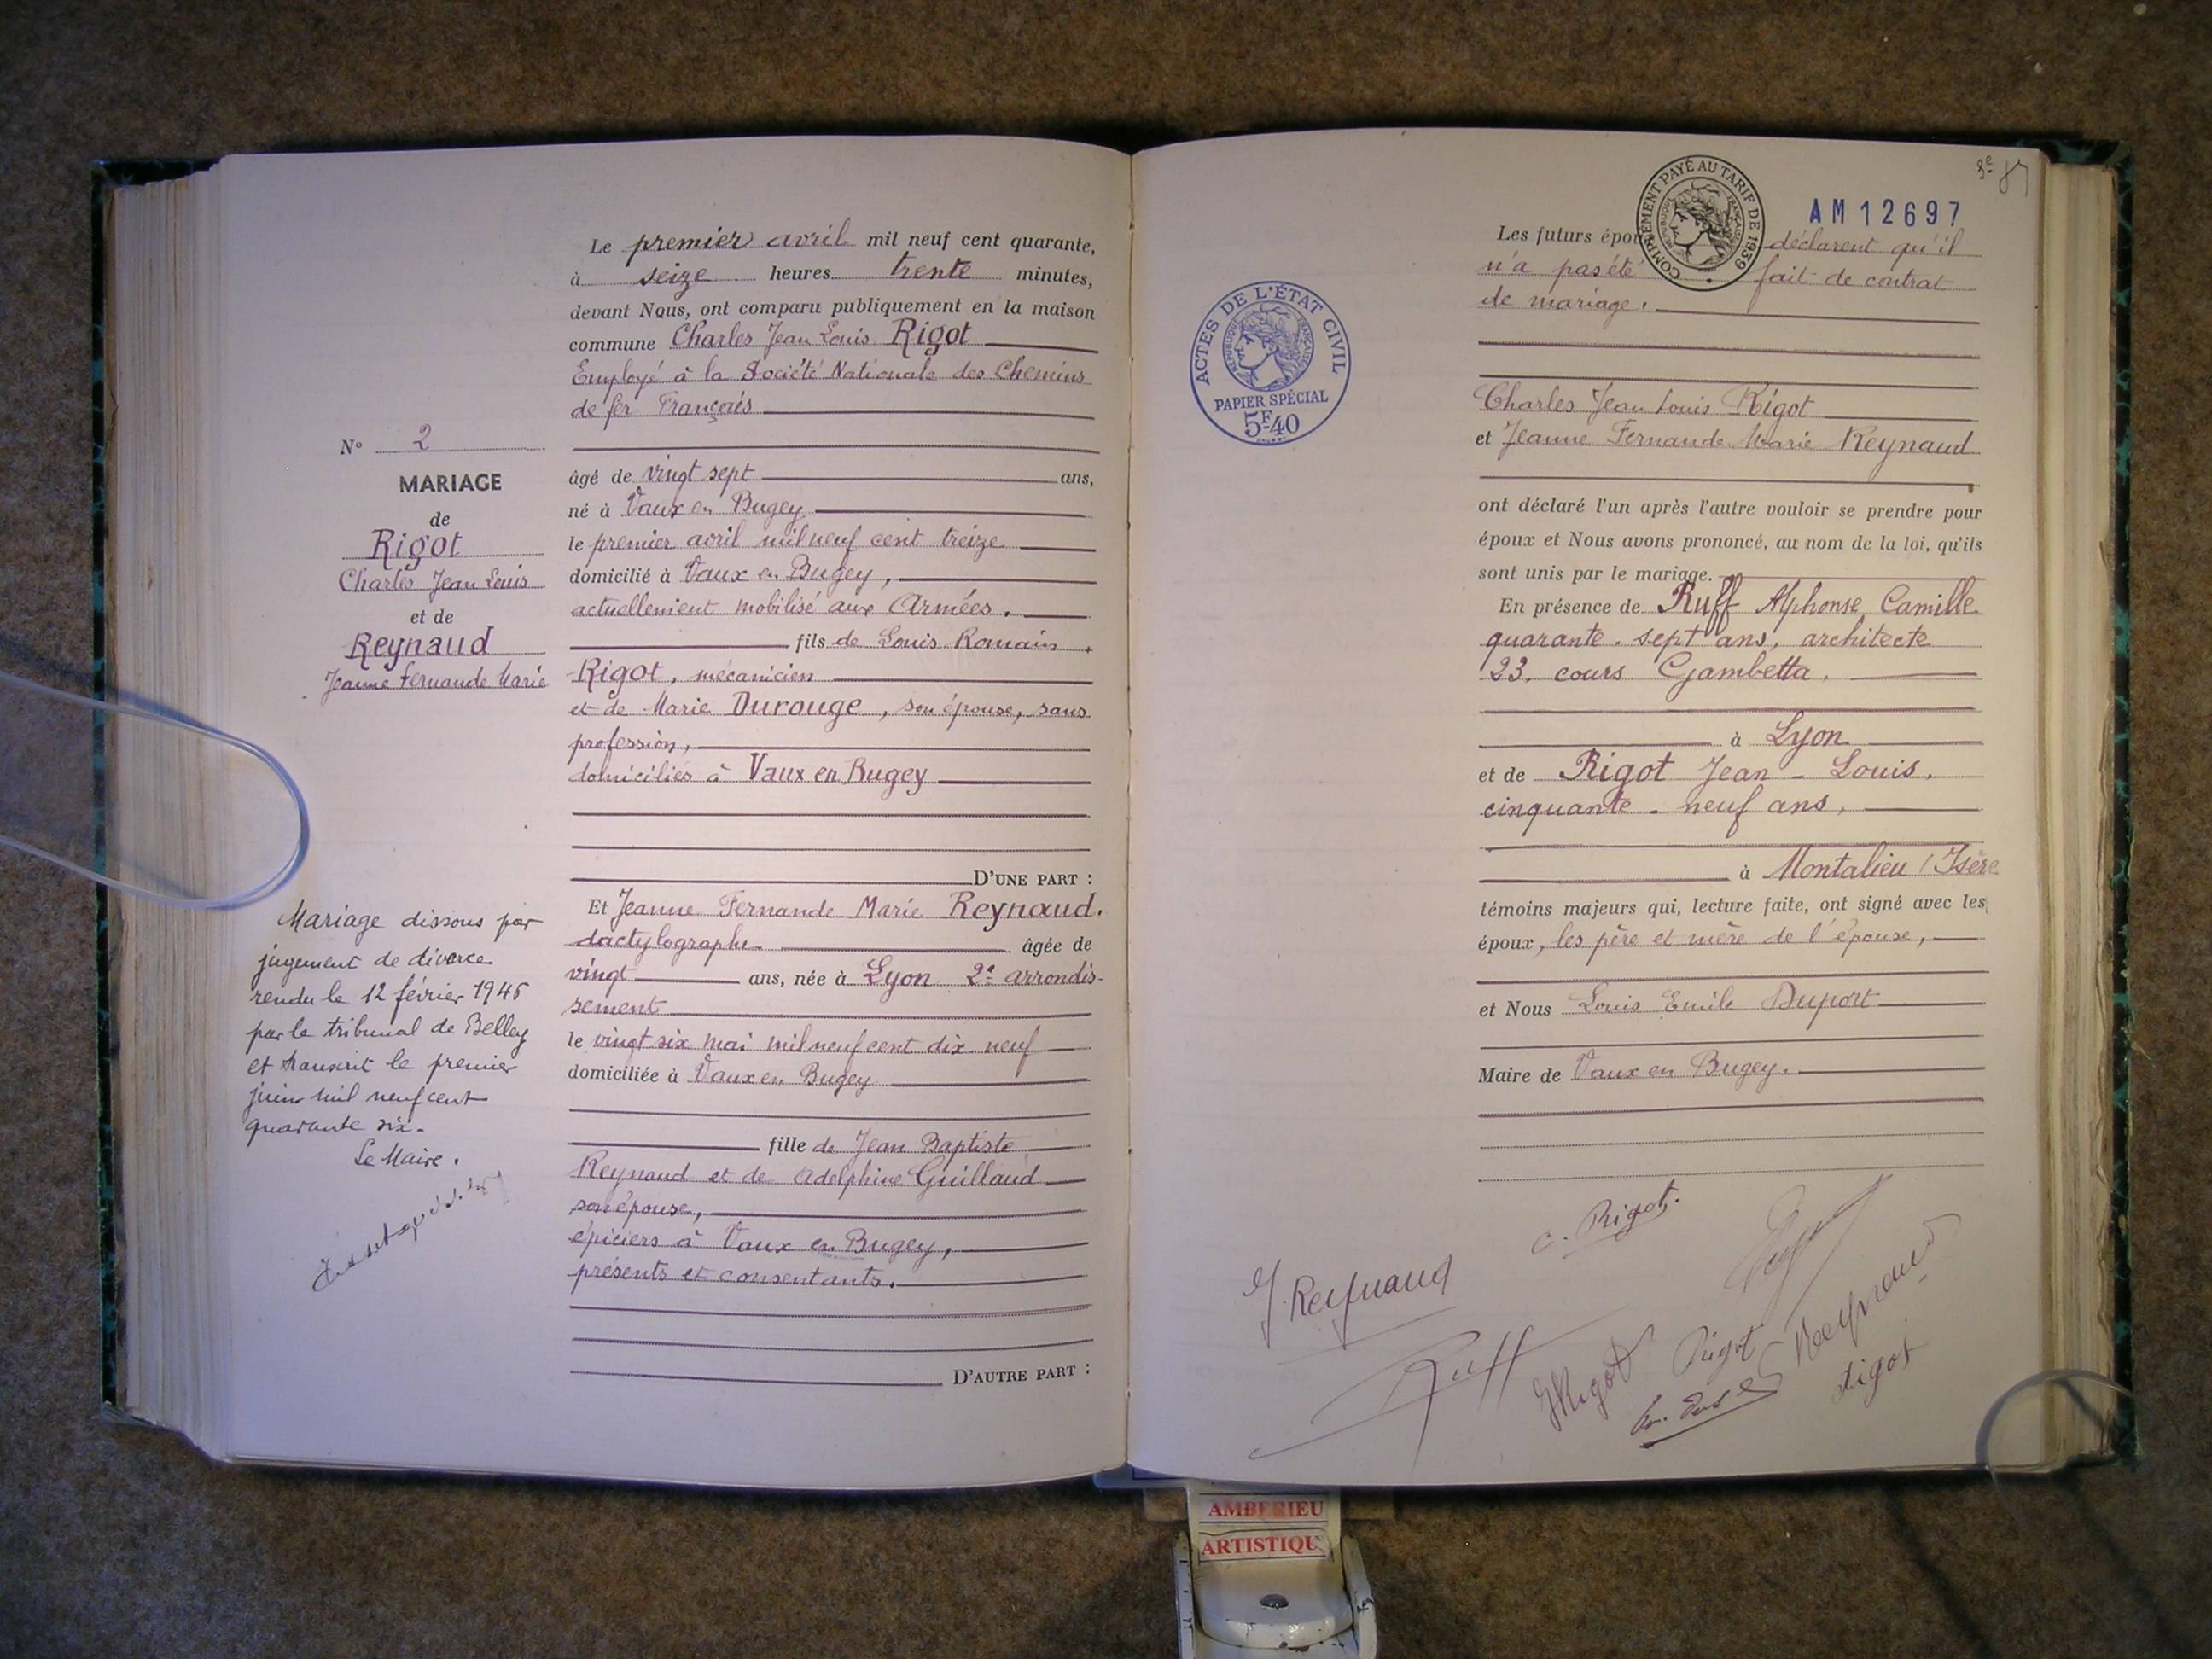 Le premier avril mil neuf cent quarante,
à seize heures trente minutes,
devant Nous, ont comparu publiquement en la maison
commune Charles Jean Louis Rigot
Employé à la Société Nationale des Chemins
de fer Français
N° 2
MARIAGE
de
Rigot
Charles Jean Louis
et de
Reynaud
Jeanne Fernande Marie
âgé de vingt sept ans,
né à Vaux en Bugey
le premier avril mil neuf cent treize
domicilié à Vaux en Bugey,
actuellement mobilisé aux Armées.
fils de Louis Romain
Rigot, mécanicien
et de Marie Durouge, son épouse, sans
profession,
domiciliés à Vaux en Bugey
D'UNE PART :
Et Jeanne Fernande Marie Reynaud.
dactylographe âgée de
vingt ans, née à Lyon 2e arrondis-
sement
le vingt six mai mil neuf cent dix neuf
domiciliée à Vaux en Bugey
fille de Jean Baptiste
Reynaud et de Adelphine Guillaud
son épouse,
épiciers à Vaux en Bugey,
présents et consentants.
D'AUTRE PART :
Mariage dissous par
jugement de divorce
rendu le 12 février 1946
par le tribunal de Belley
et transcrit le premier
juin mil neuf cent
quarante six.
Le Maire.
COMPLÉMENT PAYÉ AU TARIF DE 1939
RÉPUBLIQUE FRANÇAISE
AM12697
Les futurs épou déclarent qu'il
n'a pas été fait de contrat
de mariage.
ACTES DE L'ÉTAT CIVIL
RÉPUBLIQUE FRANÇAISE
PAPIER SPÉCIAL
5F40
Charles Jean Louis Rigot
et Jeanne Fernande Marie Reynaud
ont déclaré l'un après l'autre vouloir se prendre pour
époux et Nous avons prononcé, au nom de la loi, qu'ils
sont unis par le mariage.
En présence de Ruff Alphonse Camille
quarante-sept ans, architecte
23, cours Gambetta,
à Lyon
et de Rigot Jean-Louis,
cinquante-neuf ans,
à Montalieu (Isère
témoins majeurs qui, lecture faite, ont signé avec les
époux, les père et mère de l'épouse,
et Nous Louis Emile Duport
Maire de Vaux en Bugey.
C. Rigot.
J. Reynaud
Ruff
JRigot
Rigot
Reynaud
Rigot
AMBERIEU
ARTISTIQU